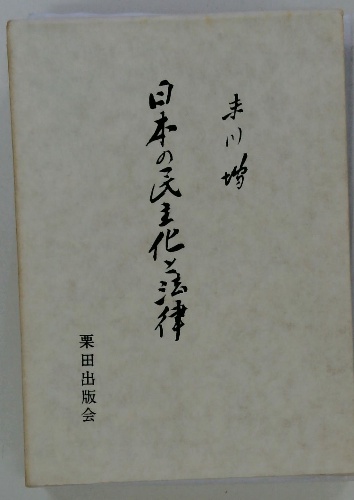 末川博
日本の民主化と法律
栗田出版会